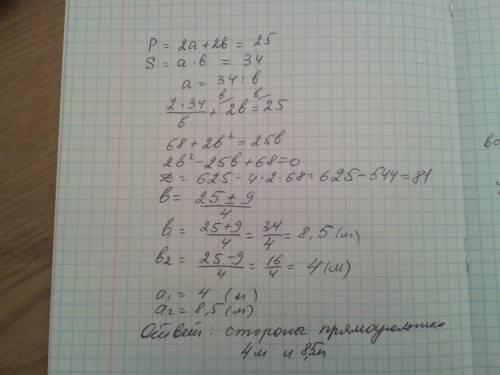 P = 2a + 2b = 25
S = a · b = 34
a = 34 : b
2·34/b + 2b = 25
68 + 2b² = 25b
2b² - 25b + 68 = 0
D = 625 - 4·2·68 = 625 - 544 = 81
b = 25 ± 9/4
b₁ = 25+9/4 = 34/4 = 8,5 (м)
b₂ = 25-9/4 = 16/4 = 4 (м)
a₁ = 4 (м)
a₂ = 8,5 (м)
Ответ: стороны прямоугольника
4 м и 8,5 м